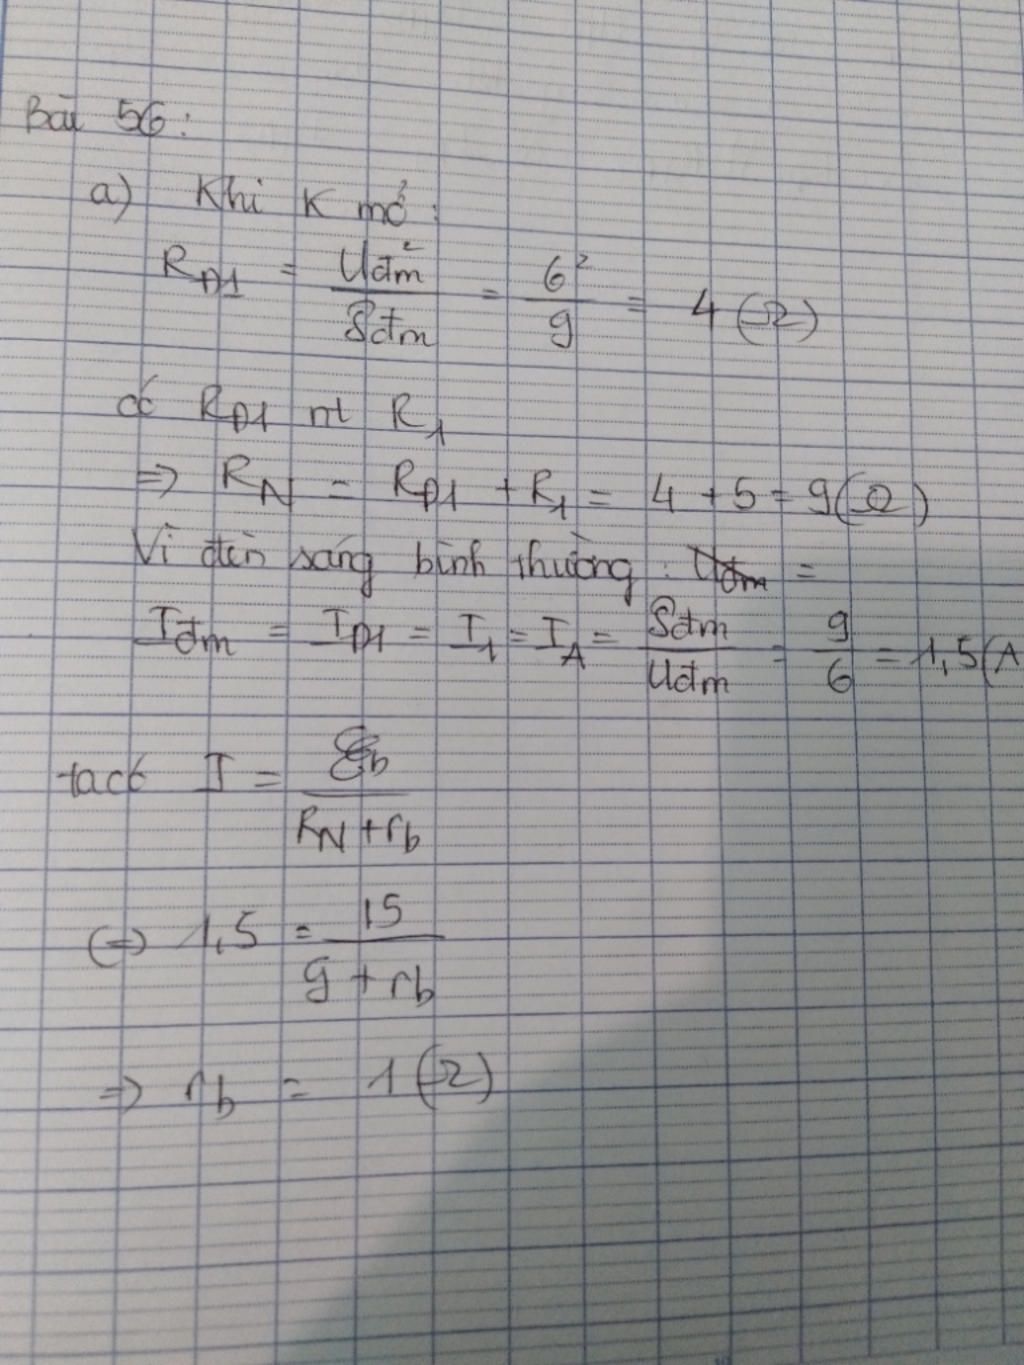 Bài 56:
a) Khi K mở:
RĐ1 = Uđm² / Pđm = 6² / 9 = 4 (Ω)
có RĐ1 nt R1
=> RN = RĐ1 + R1 = 4 + 5 = 9 (Ω)
Vì đèn sáng bình thường: Uđm =
Iđm = IĐ1 = I1 = IA = Pđm / Uđm = 9 / 6 = 1,5 (A
ta có I = ℰb / (RN + rb)
(=) 1,5 = 15 / (9 + rb)
=> rb = 1 (Ω)